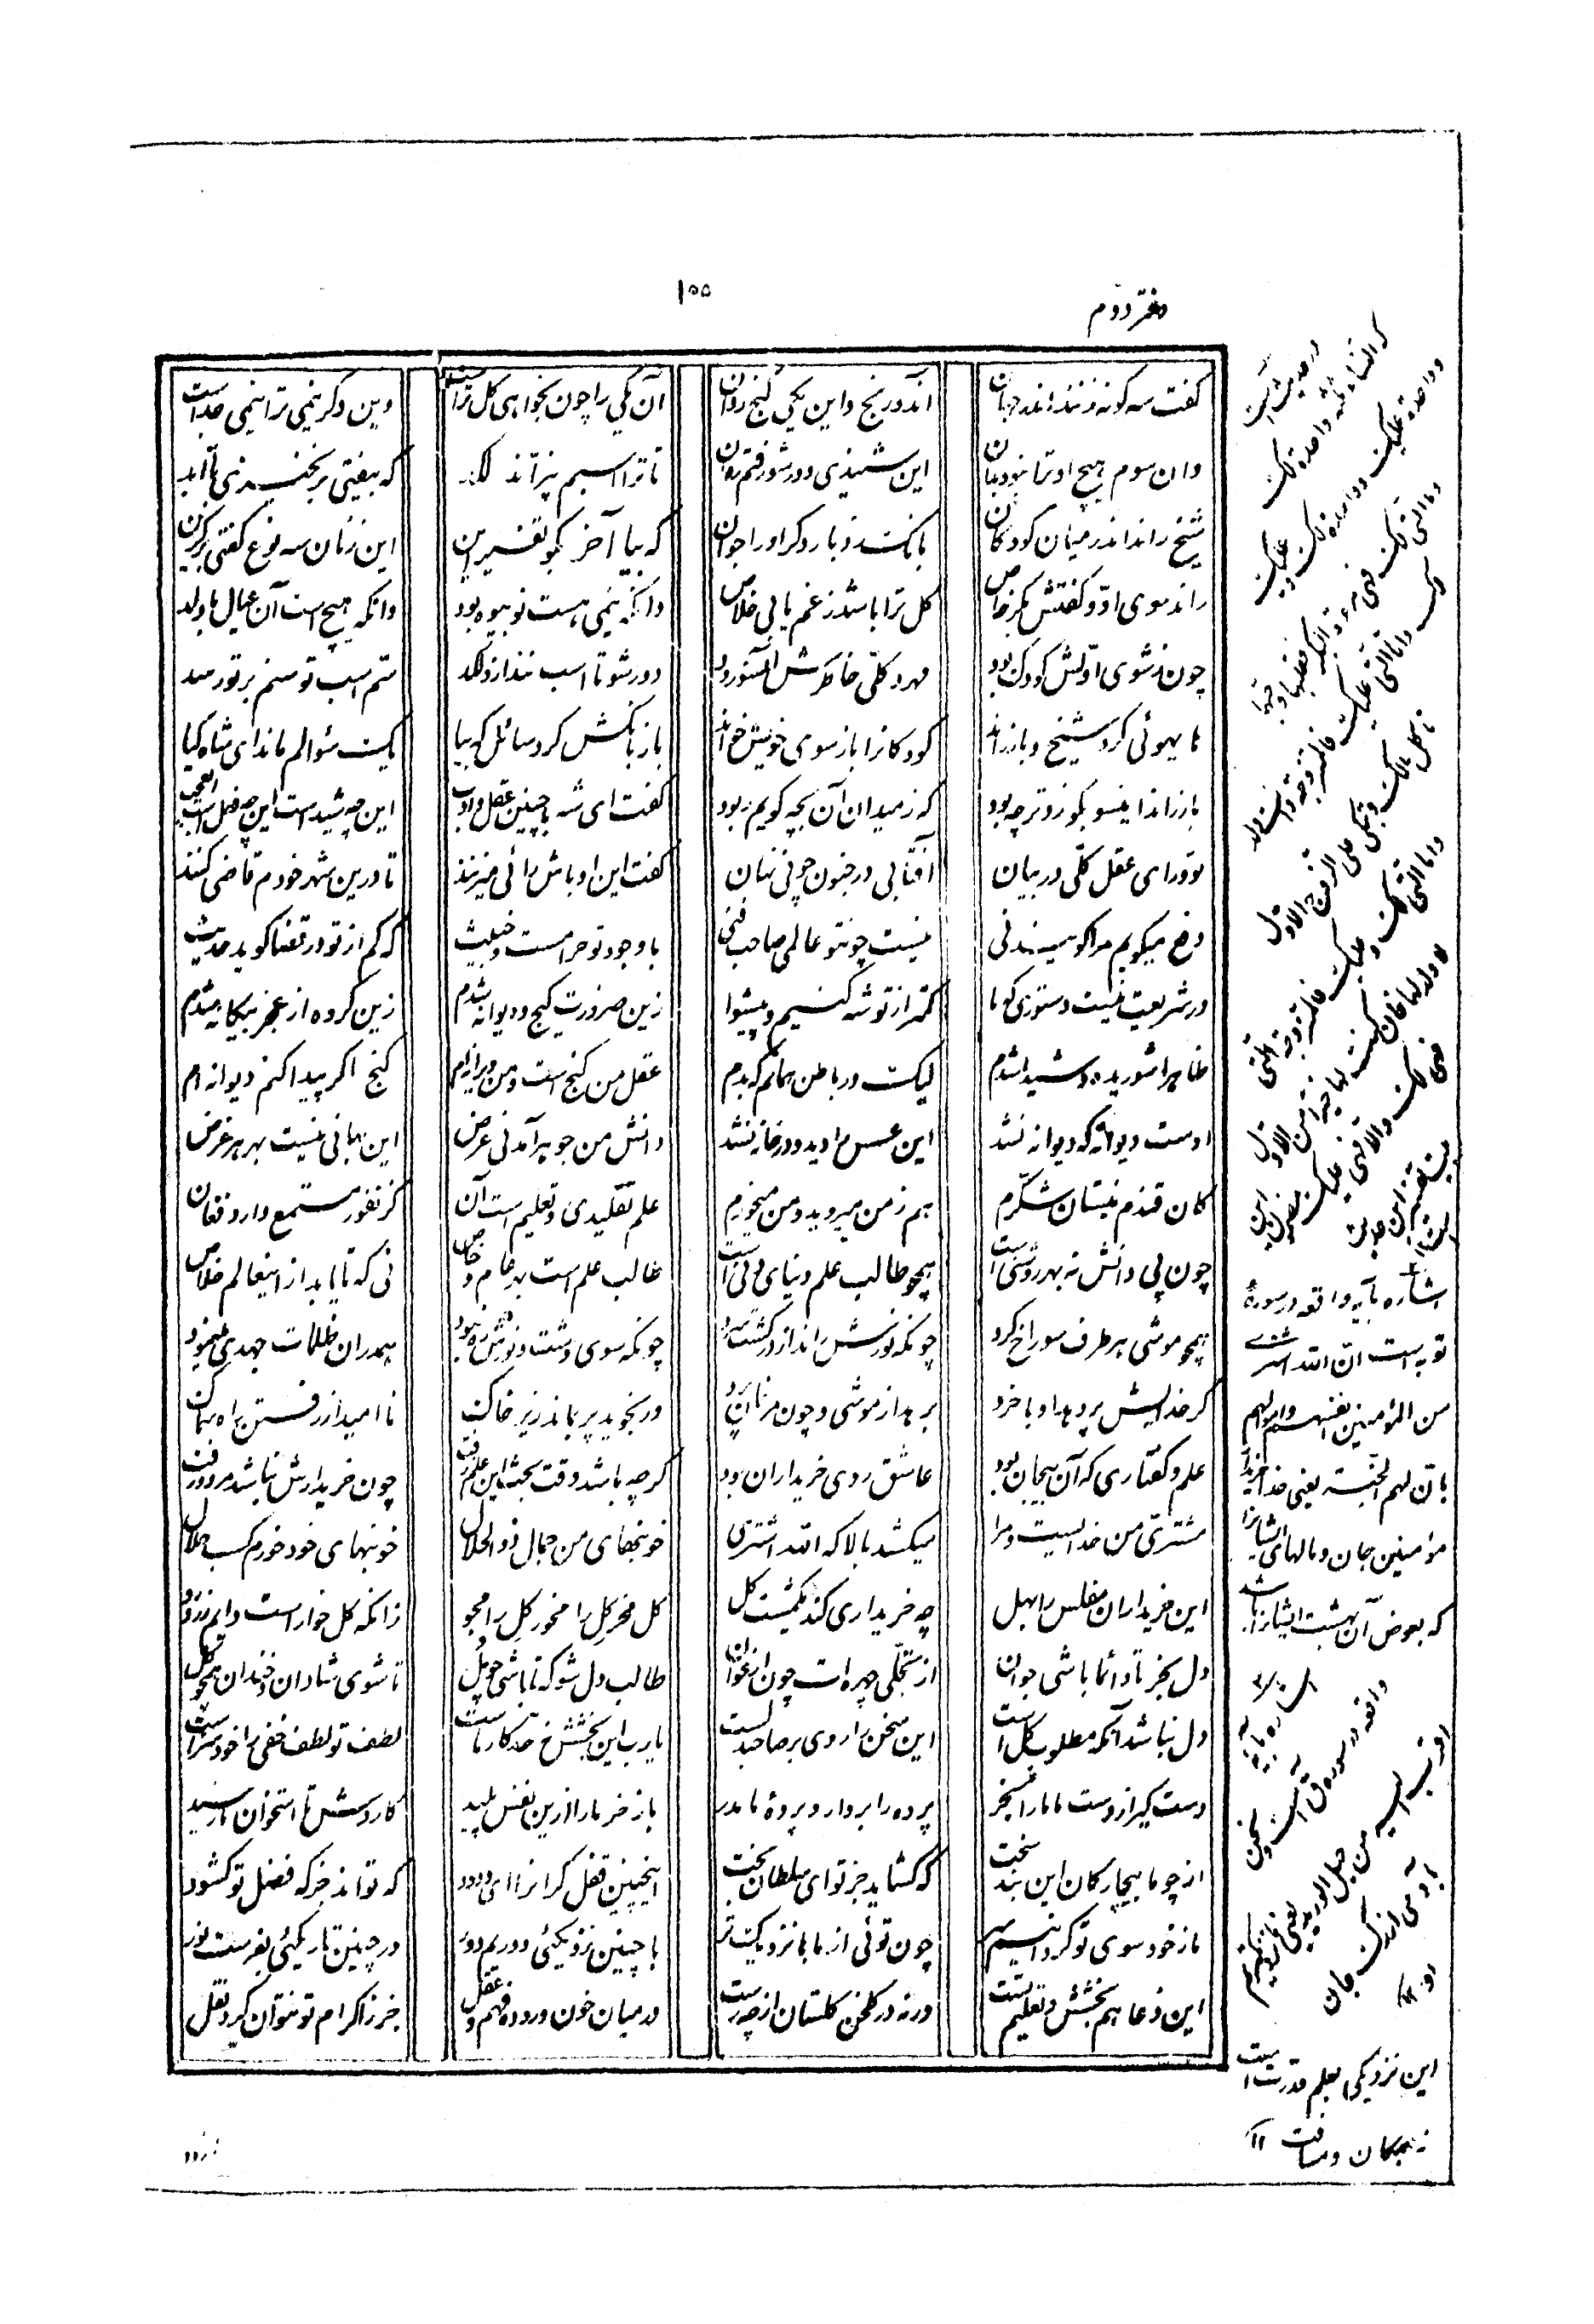 ۱۵۵
دفتر دوم
گفت سه گونه زنند اندر جهان آن دو رنج و این یکی گنج روان آن یکی را چون بخواهی کل تراست وین دگر نیمی ترا نیمی جداست
وان سوم هیچ او ترا نبود بدان این شنیدی دور شو رفتم روان تا ترا اسپم نپراند لگد که بیفتی بر نخیزی تا ابد
شیخ راند اندر میان کودکان بانک زد بار دگر او را جوان که بیا آخر بگو تفسیر این این زنان سه نوع گفتی بر گزین
راند سوی او و گفتش بکر خاص کل ترا باشد ز غم یابی خلاص وانکه نیمی هست تو بیوه بود وانکه هیچ است آن عیال با ولد
چون ز شوی اولش کودک بود مهر و کلی خاطرش آنسو رود دور شو تا اسب نندازد لگد سم اسب توسنم بر تو رسد
های هوئی کرد شیخ و باز راند کودکانرا باز سوی خویش خواند باز بانگش کرد سائل که بیا یک سئوالم ماند ای شاه کیا
باز راند اینسو بگو زوتر چه بود که ز میدان آن بچه گویم ربود گفت ای شه با چنین عقل و ادب این چه شید است این چه فعل است العجب
تو ورای عقل کلی در بیان آفتابی در جنون چونی نهان گفت این اوباش رائی میزنند تا درین شهر خودم قاضی کنند
دفع میگویم مرا گویند نی نیست چون تو عالمی صاحب فنی با وجود تو حرامست و خبیث که کم از تو در قضا گوید حدیث
در شریعت نیست دستوری که ما کمتر از تو شه کنیم و پیشوا زین ضرورت گیج و دیوانه شدم زین گروه از عجز بیگانه شدم
ظاهرا شوریده و شیدا شدم لیک در باطن همانم که بدم عقل من گنج است و من ویرانه ام گنج اگر پیدا کنم دیوانه ام
اوست دیوانه که دیوانه نشد این عسس را دید و در خانه نشد دانش من جوهر آمد نی عرض این بهائی نیست بهر هر غرض
کان قندم نیستان شکرم هم ز من میروید و من میخورم علم تقلیدی و تعلیم است آن کز نفور مستمع دارد فغان
چون پی دانش نه بهر روشنی است همچو طالب علم دنیای دنی است طالب علم است بهر عام و خاص نی که تا یابد از این عالم خلاص
همچو موشی هر طرف سوراخ کرد چونکه نورش راند از در گشت سرد چونکه سوی دشت و نورش ره نبود هم در آن ظلمات جهدی مینمود
گر خدایش پر دهد او با خرد برهد از موشی و چون مرغان پرد ور نجوید پر بماند زیر خاک ناامید از رفتن راه سماک
علم و گفتاری که آن بیجان بود عاشق روی خریداران بود گرچه باشد وقت بحث این علم زفت چون خریدارش نباشد مرد و رفت
مشتری من خدایست و مرا میکشد بالا که الله اشتری خونبهای من جمال ذوالجلال خونبهای خود خورم کسب حلال
این خریداران مفلس را بهل چه خریداری کند یکمشت گل گل مخر گل را مخور گل را مجو زانکه گل خوار است دایم زرد رو
دل بخر تا دائما باشی جوان از تجلی چهره ات چون ارغوان طالب دل شو که تا باشی چو مل تا شوی شادان و خندان همچو گل
دل نباشد آنکه مطلوب گل است این سخن را روی بر صاحبدلست یارب این بخشش نه حد کار ماست لطف تو لطف خفی را خود سزاست
دست گیر از دست ما ما را بخر پرده را بردار و پردهٔ ما مدر باز خر ما را ازین نفس پلید کاردش تا استخوان ما رسید
از چو ما بیچارگان این بند سخت که گشاید جز تو ای سلطان بخت اینچنین قفل گران را ای ودود که تواند جز که فضل تو گشود
ما ز خود سوی تو گردانیم سر چون توئی از ما بما نزدیک تر با چنین نزدیکئی دوریم دور در چنین تاریکئی بفرست نور
این دعا هم بخشش و تعلیم تست ورنه در گلخن گلستان از چه رست در میان خون و روده فهم و عقل جز ز اکرام تو نتوان کرد نقل
در حدیث است
اشاره بآیه واقعه در سورهٔ
توبه است ان الله اشتری
من المؤمنین انفسهم و اموالهم
بان لهم الجنة یعنی خدا خرید از
مؤمنین جان و مالهای ایشانرا
که بعوض آن بهشت ایشانرا باشد
اشاره بآیه
واقعه در سوره ق است و نحن
اقرب الیه من حبل الورید
این نزدیکی بعلم و قدرت است
نه بمکان و مسافت ۱۲